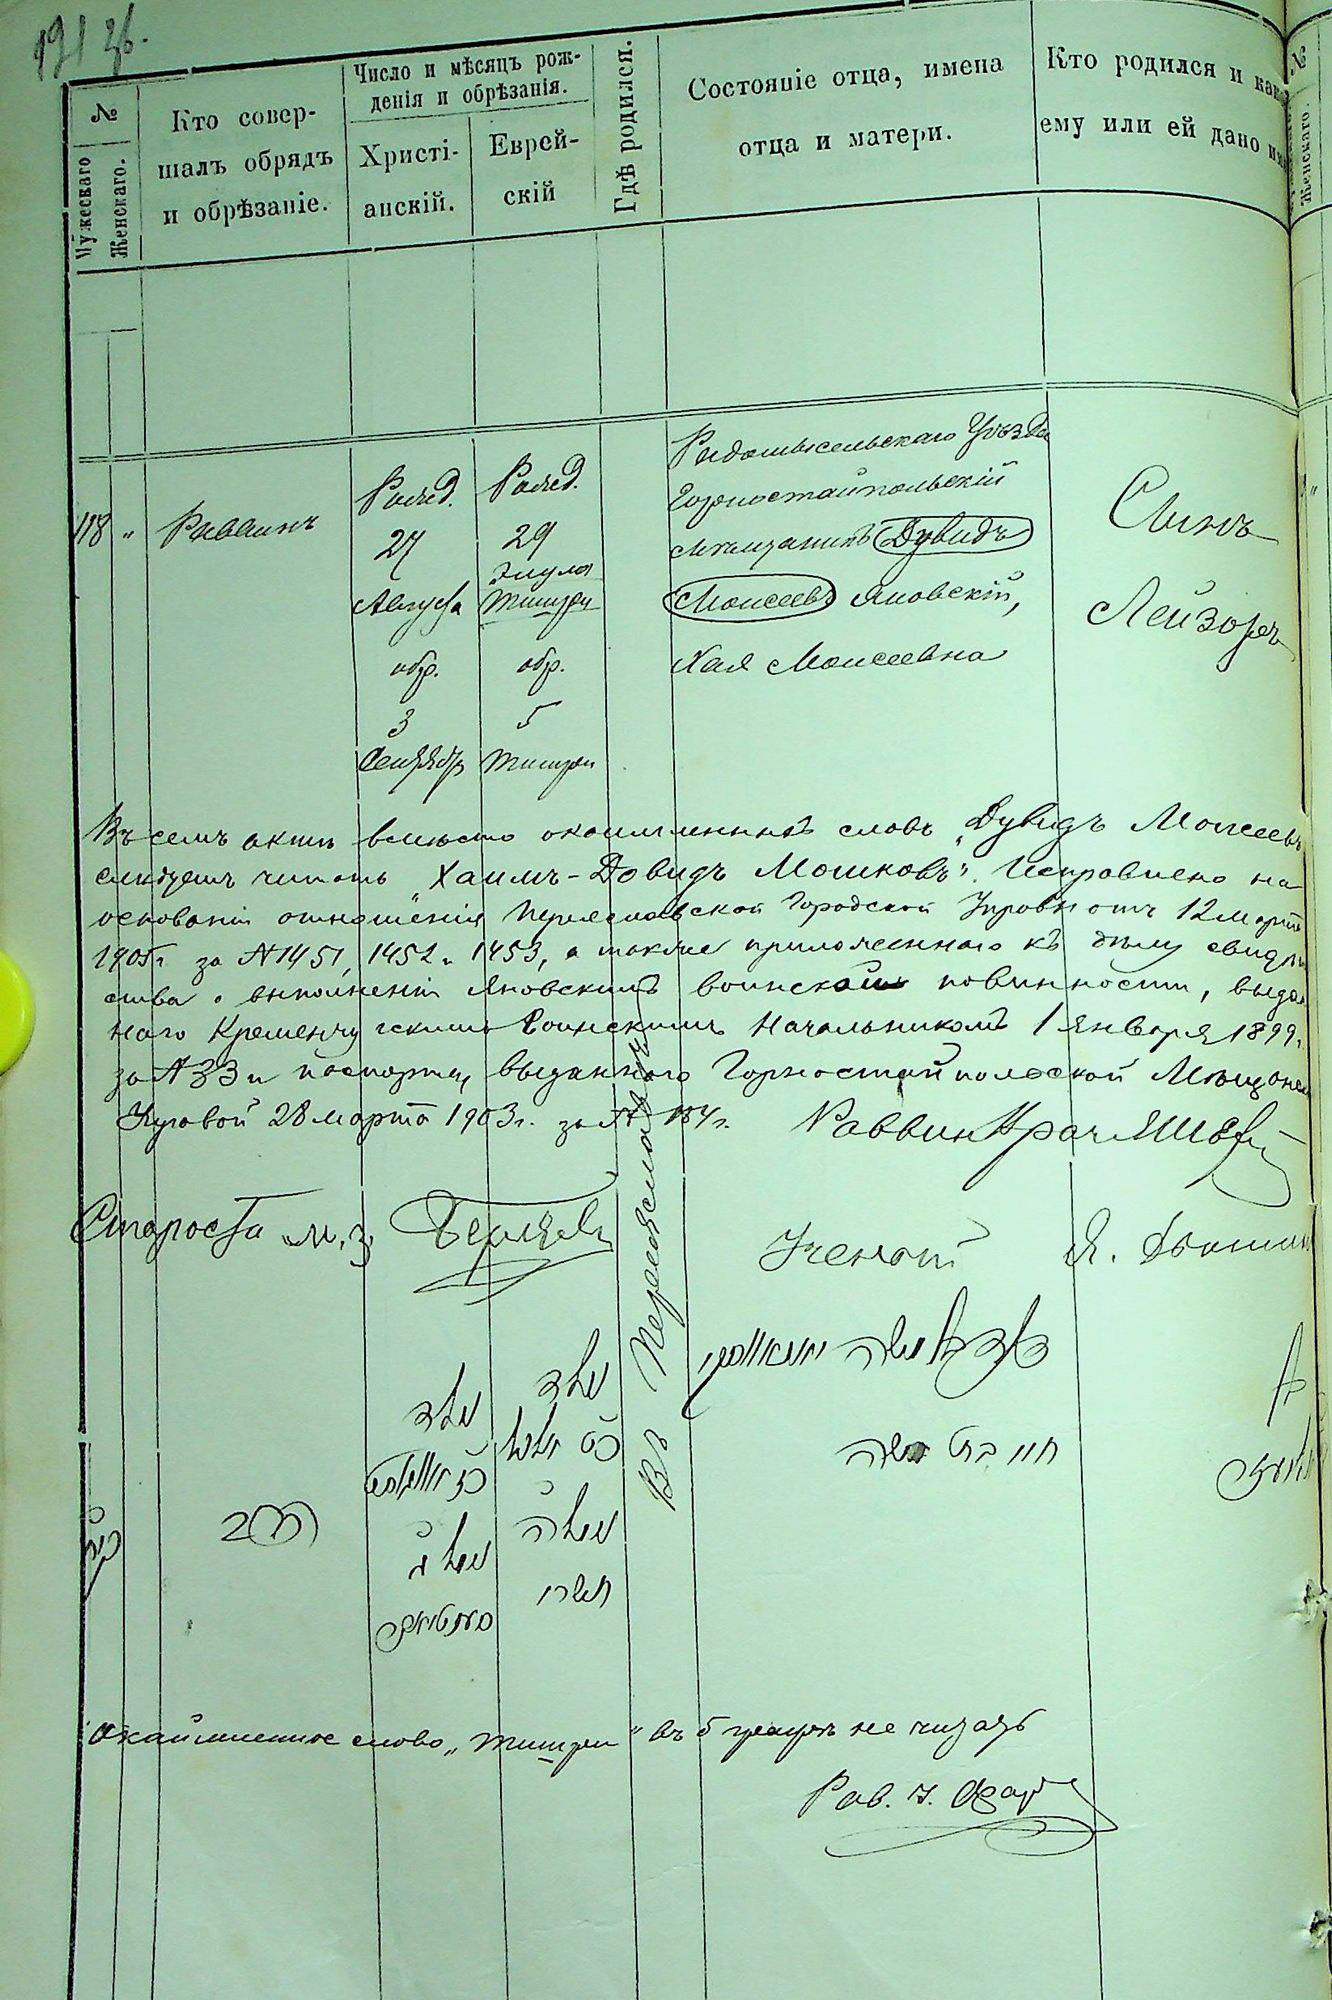 №
Мужескаго
Женскаго.
Кто совер-
шалъ обрядъ
и обрѣзаніе.
Число и мѣсяцъ рож-
денія и обрѣзанія.
Христі-
анскій.
Еврей-
скій
Гдѣ родился.
Состояніе отца, имена
отца и матери.
Кто родился и как
ему или ей дано им
118 "
Раввинъ
Рожд.
27
Августа
обр.
3
Сентября
Рожд.
29
Элула
Тишри
обр.
5
Тишри
Въ Переяславѣ
Радомысельскаго Уѣзда
Горностайпольскій
мѣщанинъ Дувидъ
Моисеевъ Яновскій,
Хая Моисеевна
Сынъ
Лейзоръ
Въ семъ актѣ вмѣсто окаймленныхъ словъ „Дувидъ Моисеевъ
слѣдуетъ читать „Хаимъ-Довидъ Мошковъ". Исправлено на
основаніи отношенія Переяславской Городской Управы отъ 12 марта
1905 г. за № 1451, 1452 и 1453, а также приложеннаго къ дѣлу свидѣ
ства о выполненіи Яновскимъ воинской повинности, выдан
наго Кременчугскимъ Воинскимъ Начальникомъ 1 Января 1899 г.
за № 33 и паспорта, выданнаго Горностайпольской Мѣщанск
Управой 28 марта 1903 г. за №
Раввин
Староста м. з.
Ученый Я.
נולד
כז אויגוסט
נימול ג
סענטיאבר
נולד
כט אלול
נימול ה
תשרי
דוד משה יאנאווסקי
חיה בת משה
Окаймленное слово „Тишри" въ 5 графѣ не читать
Рав.